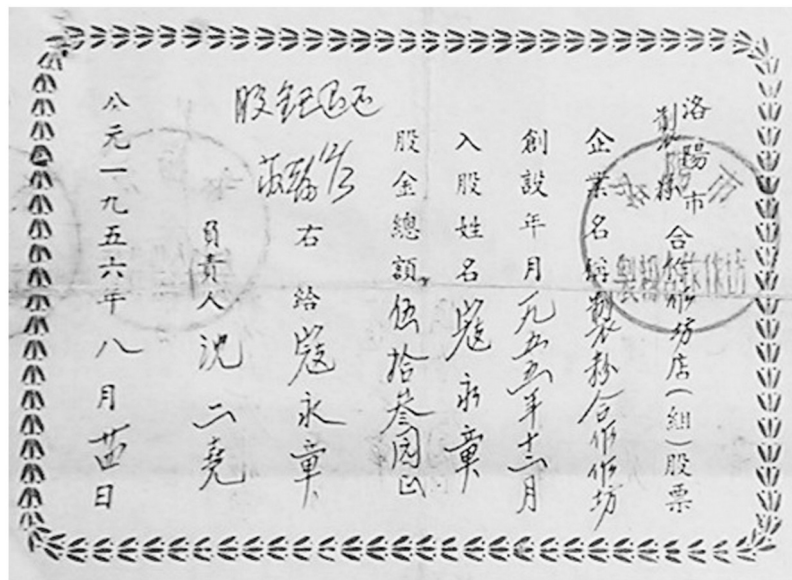 洛陽市製粉合作作坊店(組)股票
企業名稱製粉合作作坊
創設年月一九五五年十二月
入股姓名寇永章
股金總額伍拾叁圆正
右給寇永章
負責人沈二堯
公元一九五六年八月廿四日